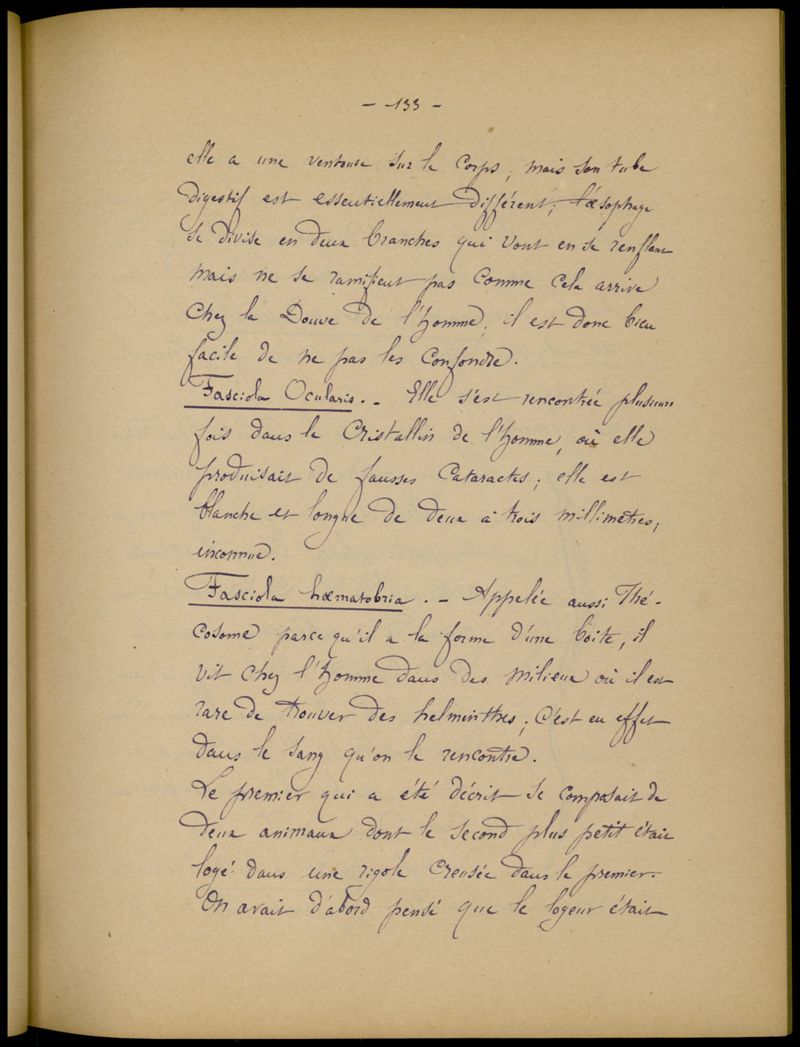 - 133 -
elle a une ventouse sur le corps, mais son tube
digestif est essentiellement différent, l'œsophage
se divise en deux branches qui vont en se renflant
mais ne se ramifient pas comme cela arrive
chez la Douve de l'homme, il est donc bien
facile de ne pas les confondre.
Fasciola Ocularis. - Elle s'est rencontrée plusieurs
fois dans le cristallin de l'homme, où elle
produisait de fausses cataractes; elle est
blanche et longue de deux à trois millimètres,
inconnue.
Fasciola hœmatobria. - Appelée aussi Thé-
cosome parce qu'il a la forme d'une boite, il
vit chez l'homme dans des milieux où il est
rare de trouver des helminthes; c'est en effet
dans le sang qu'on le rencontre.
Le premier qui a été décrit se composait de
deux animaux dont le second plus petit était
logé dans une rigole creusée dans le premier.
On avait d'abord pensé que le logeur était